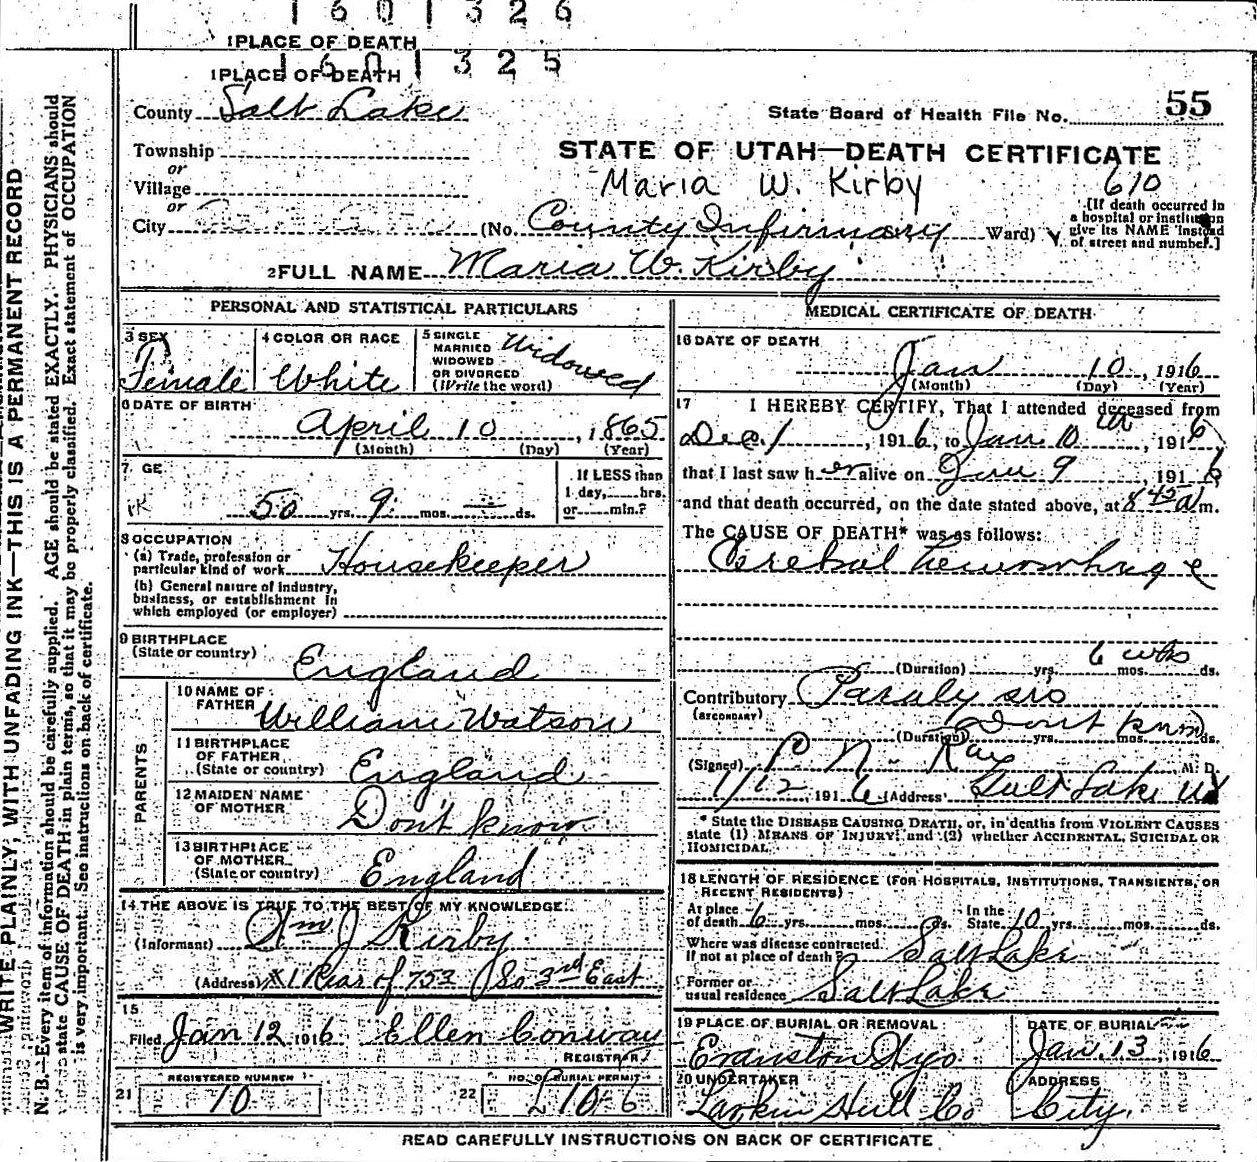 1 6 0 1 3 2 6
1 PLACE OF DEATH
1 6 0 1 3 2 5
1 PLACE OF DEATH
County Salt Lake
State Board of Health File No. 55
Township
or
Village
or
City
STATE OF UTAH—DEATH CERTIFICATE
Maria W. Kirby 610
(No. County Infirmary Ward)
[If death occurred in
a hospital or institution
give its NAME instead
of street and number.]
2 FULL NAME Maria W. Kirby
PERSONAL AND STATISTICAL PARTICULARS
3 SEX
Female
4 COLOR OR RACE
White
5 SINGLE
MARRIED
WIDOWED
OR DIVORCED
(Write the word)
Widowed
6 DATE OF BIRTH
April 10, 1865
(Month) (Day) (Year)
7 GE
50 yrs. 9 mos. — ds.
If LESS than
1 day, hrs.
or min.?
8 OCCUPATION
(a) Trade, profession or
particular kind of work Housekeeper
(b) General nature of industry,
business, or establishment in
which employed (or employer)
9 BIRTHPLACE
(State or country)
England
PARENTS
10 NAME OF
FATHER William Watson
11 BIRTHPLACE
OF FATHER
(State or country) England
12 MAIDEN NAME
OF MOTHER Don't know
13 BIRTHPLACE
OF MOTHER
(State or country) England
14 THE ABOVE IS TRUE TO THE BEST OF MY KNOWLEDGE
(Informant) Wm J Kirby
(Address) #1 Rear of 753 So. 3rd East
15
Filed Jan 12 1916 Ellen Conway
REGISTRAR
21 REGISTERED NUMBER
10
22 NO. OF BURIAL PERMIT
MEDICAL CERTIFICATE OF DEATH
16 DATE OF DEATH
Jan 10, 1916
(Month) (Day) (Year)
17 I HEREBY CERTIFY, That I attended deceased from
Dec. 1, 1916, to Jan. 10th, 1916
that I last saw her alive on Jan 9 1916
and that death occurred, on the date stated above, at 8 45 a m.
The CAUSE OF DEATH* was as follows:
Cerebral hemorrhage
(Duration) yrs. 6 wks mos. ds.
Contributory Paralysis
(SECONDARY)
(Duration) yrs. Dont know mos. ds.
(Signed) P. N. Ray M. D.
1/12, 1916 (Address) Salt Lake Ut
* State the DISEASE CAUSING DEATH, or, in deaths from VIOLENT CAUSES
state (1) MEANS OF INJURY; and (2) whether ACCIDENTAL, SUICIDAL OR
HOMICIDAL
18 LENGTH OF RESIDENCE (FOR HOSPITALS, INSTITUTIONS, TRANSIENTS, OR
RECENT RESIDENTS)
At place
of death 6 yrs. mos. ds. In the
State 10 yrs. mos. ds.
Where was disease contracted
If not at place of death? Salt Lake
Former or
usual residence Salt Lake
19 PLACE OF BURIAL OR REMOVAL
Evanston Wyo
DATE OF BURIAL
Jan. 13, 1916
20 UNDERTAKER
Larkin Hull Co
ADDRESS
City.
READ CAREFULLY INSTRUCTIONS ON BACK OF CERTIFICATE
WRITE PLAINLY, WITH UNFADING INK—THIS IS A PERMANENT RECORD
N. B.—Every item of information should be carefully supplied. AGE should be stated EXACTLY. PHYSICIANS should
state CAUSE OF DEATH in plain terms, so that it may be properly classified. Exact statement of OCCUPATION
is very important. See instructions on back of certificate.